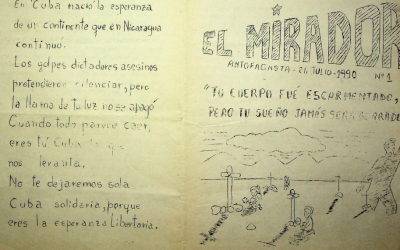 En Cuba nació la esperanza
de un continente que en Nicaragua
continuó.
Los golpes dictadores asesinos
pretendieron silenciar, pero
la llama de tu luz no se apagó
Cuando todo parece caer,
eres tú Cuba
nos levanta.
No te dejaremos sola
Cuba solidaria, porque
eres la esperanza Libertaria.
EL MIRADOR
ANTOFAGASTA - 26 JULIO - 1990 Nº 1
"TU CUERPO FUÉ ESCARMENTADO,
PERO TU SUEÑO JAMÁS SERÁ